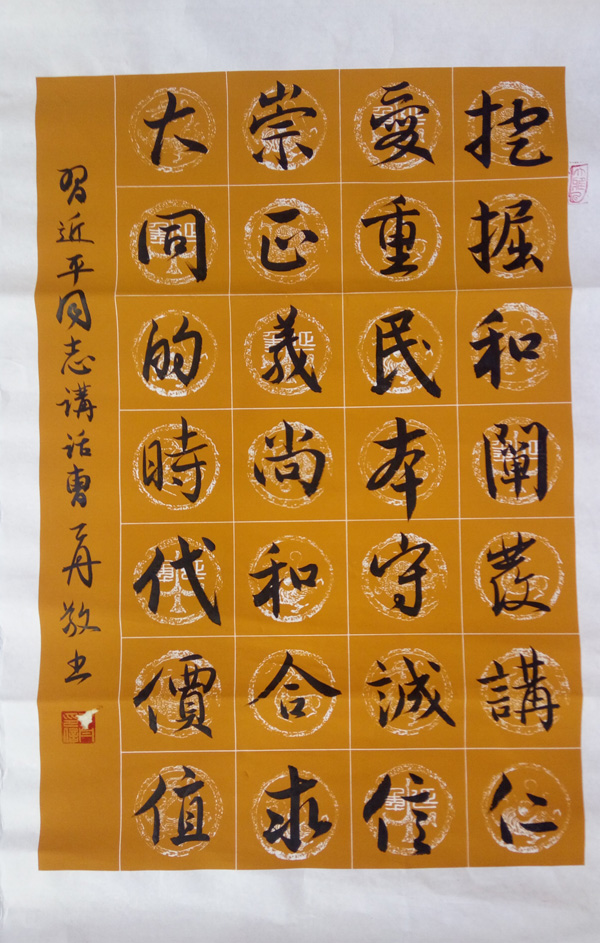 挖掘和闡發講仁
愛重民本守誠信
崇正義尚和合求
大同的時代價值
習近平同志講話曹一舟敬书